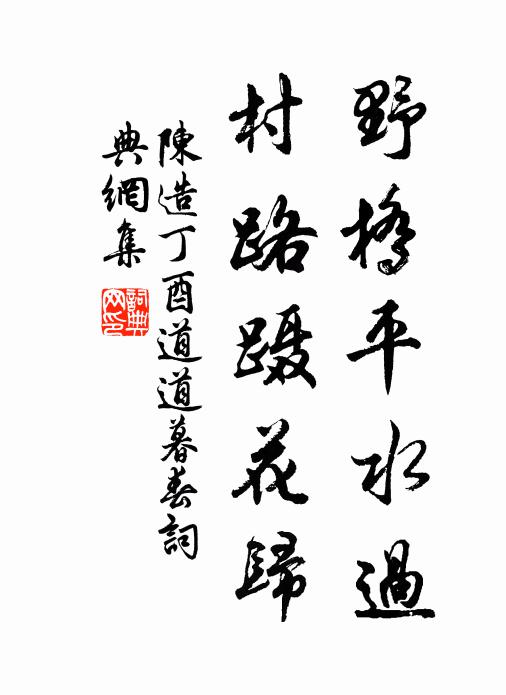 野橋平水過
村路蹑花歸
陳造丁酉道道暮春詞
典網集
詞典網印